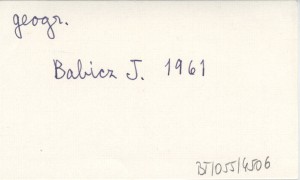 geogr.
Babicz J. 1961
BJ/055/4506